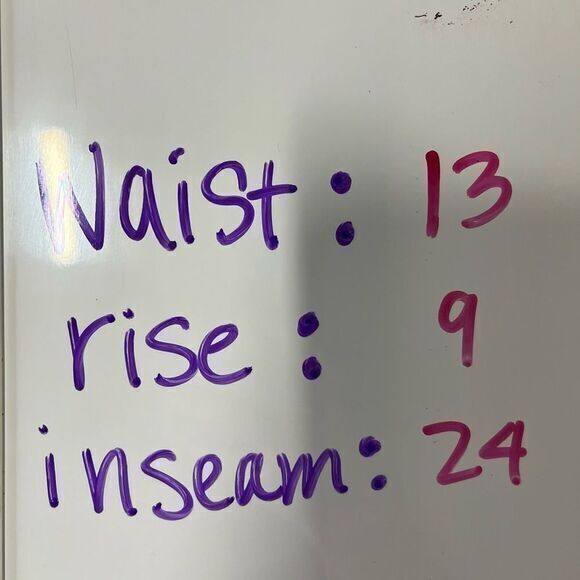 Waist: 13
rise: 9
inseam: 24